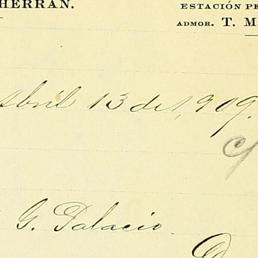 HERRAN.
ESTACIÓN PE
ADMOR. T. M
Abril 13 de 1,909.
c/
G. Palacio.